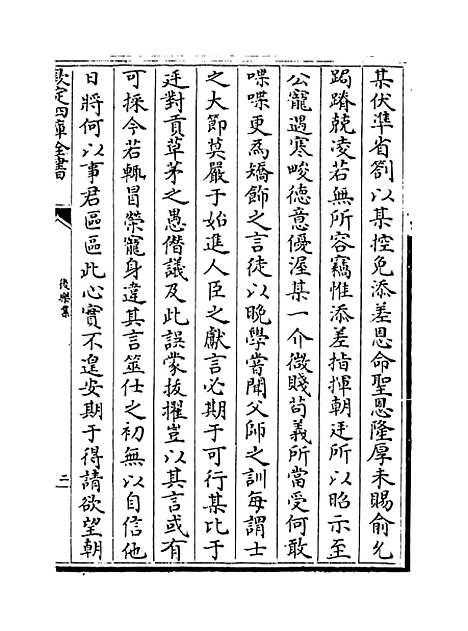 某伏準省劄以某控免添差恩命聖恩隆厚未賜俞允
跼蹐兢凌若無所容竊惟添差指揮朝廷所以昭示至
公寵遇寒畯德意優渥某一介微賤苟義所當受何敢
喋喋更為矯飾之言徒以晚學嘗聞父師之訓每謂士
之大節莫嚴于始進人臣之獻言必期于可行某比于
廷對貢草茅之愚僭議及此誤蒙拔擢豈以其言或有
可採今若輒冒榮寵身違其言筮仕之初無以自信他
日將何以事君區區此心實不遑安期于得請欲望朝
欽定四庫全書
後樂集
三